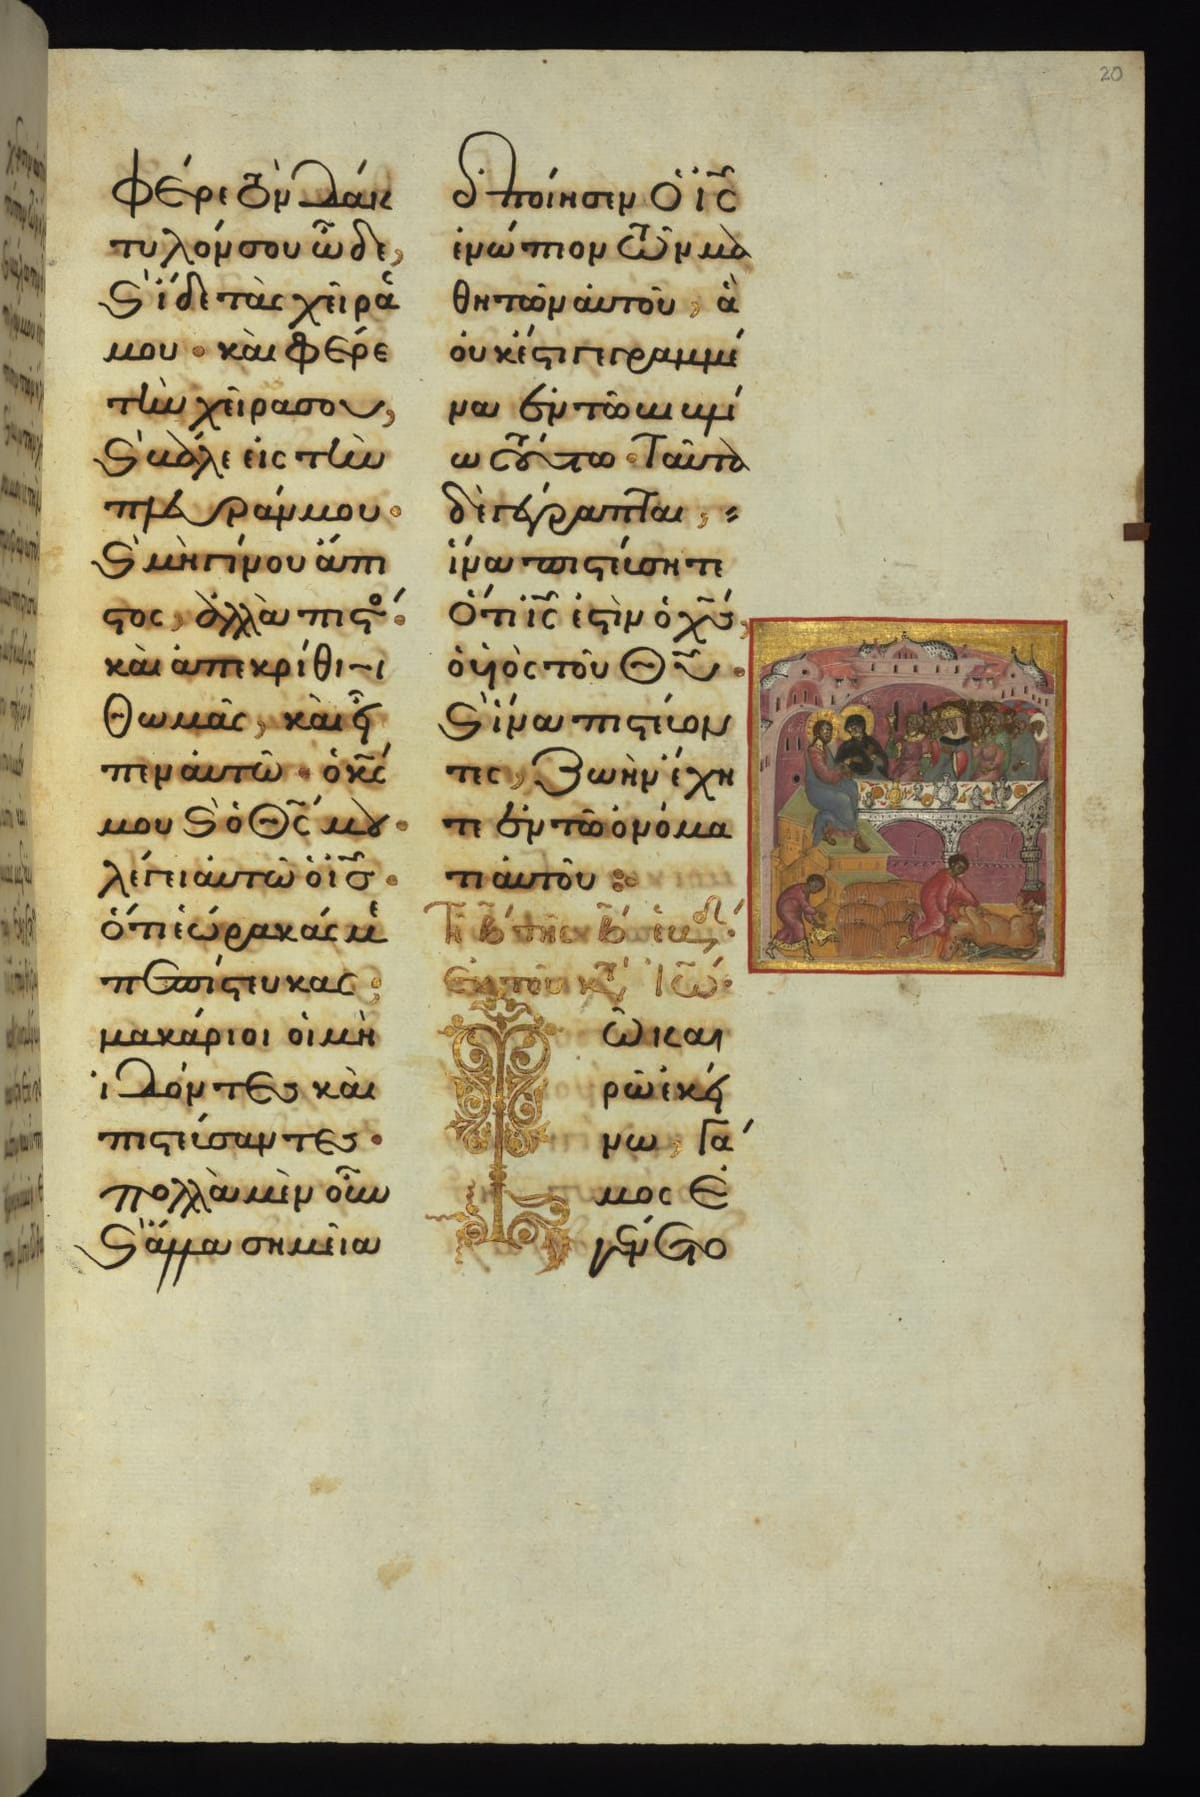 20
φέρε τὸν δάκ
τυλόν σου ὧδε,
ϗ ἴδε τὰς χεῖρά
μου· καὶ φέρε
τὴν χεῖρα σου,
ϗ βάλε εἰς τὴν
πλευράν μου·
ϗ μὴ γίνου ἄπι
στος, ἀλλὰ πιστό·
καὶ ἀπεκρίθη
Θωμᾶς, καὶ εἶ
πεν αὐτῶ· ὁ κς
μου ϗ ὁ Θς μου·
λέγει αὐτῶ ὁ ις·
ὅτι ἑώρακάς με
πεπίστευκας;
μακάριοι οἱ μὴ
ἰδόντες καὶ
πιστεύσαντες·
πολλὰ μὲν οὖν
ϗ ἄλλα σημεῖα
ἐποίησεν ὁ ις
ἐνώπιον τῶν μα
θητῶν αὐτοῦ, ἃ
οὐκ ἔστι γεγραμμέ
να ἐν τῶ βιβλί
ω τούτω· ταῦτα
δὲ γέγραπται,
ἵνα πιστεύσητε
ὅτι ις ἐστὶν ὁ χς,
ὁ υἱὸς τοῦ Θυ·
ϗ ἵνα πιστεύον
τες, ζωὴν ἔχη
τε ἐν τῶ ὀνόμα
τι αὐτοῦ:
Τῆ β τῆς β ἑβδ·
ἐκ τοῦ κτ Ἰω·
Τῶ καὶ
ρῶ ἐκεί
νω, γά
μος ἐ
γένετο